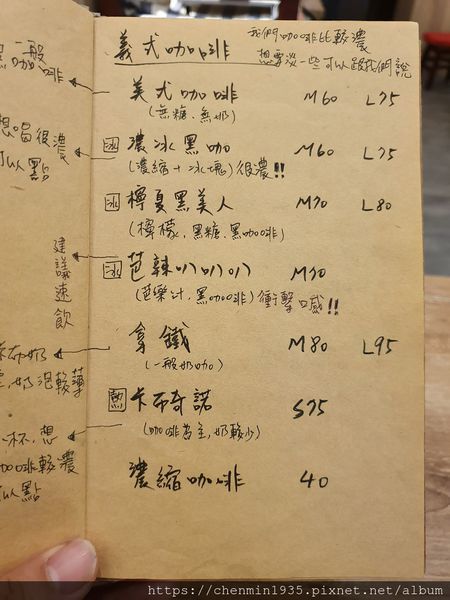 義式咖啡
我們咖啡比較濃
想要淡一些可以跟我們說
美式咖啡 M60 L75
(無糖.無奶)
冰 濃冰黑咖 M60 L75
(濃縮+冰塊) 很濃!!
冰 檸夏黑美人 M70 L80
(檸檬.黑糖.黑咖啡)
冰 芭辣叭叭叭 M70
(芭樂汁.黑咖啡) 衝擊感!!
拿鐵 M80 L95
(一般奶咖)
熱 卡布奇諾 S75
(咖啡為主,奶較少)
濃縮咖啡 40
黑咖一般
啡
想喝很濃
可以點
建議速飲
卡布奶
奶泡較薄
一杯.想
咖啡較濃
以點
https://chenmin1935.pixnet.net/album